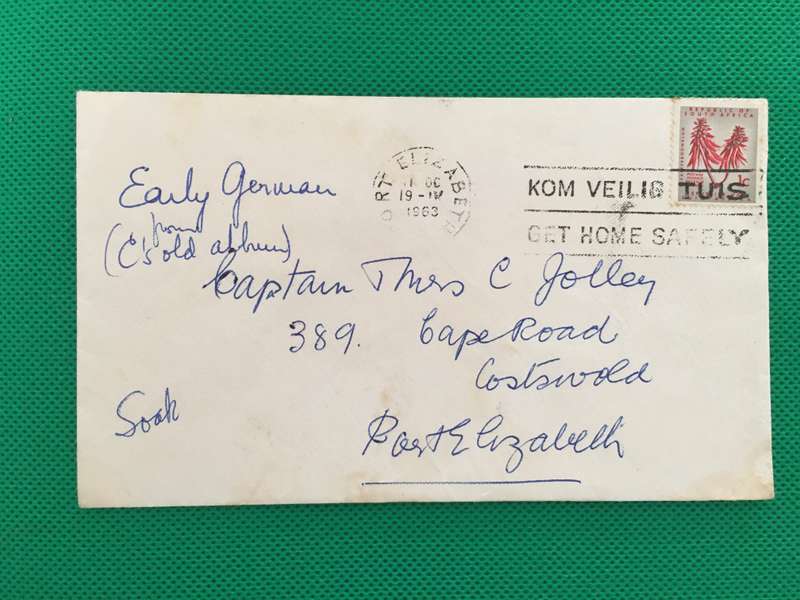 REPUBLIC OF
SOUTH AFRICA
PORT ELIZABETH
19-IV
1963
KOM VEILIG TUIS
GET HOME SAFELY
Early German
(from
C's old album)
Captain Thos C Jolley
389. Cape Road
Costswold
Port Elizabeth
Soak